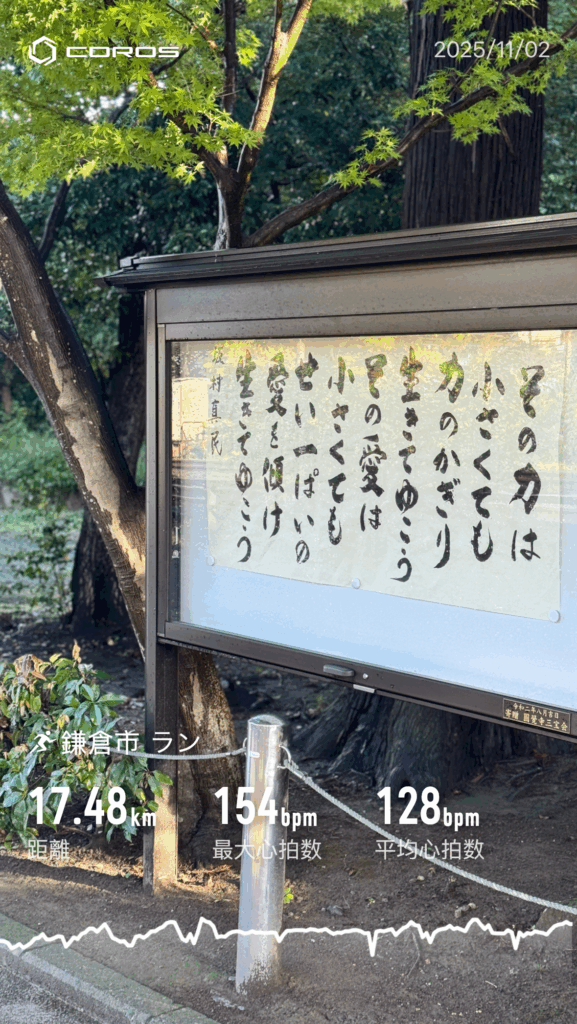 COROS
2025/11/02
その力は
小さくても
力のかぎり
生きてゆこう
その愛は
小さくても
せい一ぱいの
愛を傾け
生きてゆこう
坂村真民
令和二年八月吉日
寄贈 圓覺寺三宝会
鎌倉市 ラン
17.48km
154bpm
128bpm
距離
最大心拍数
平均心拍数